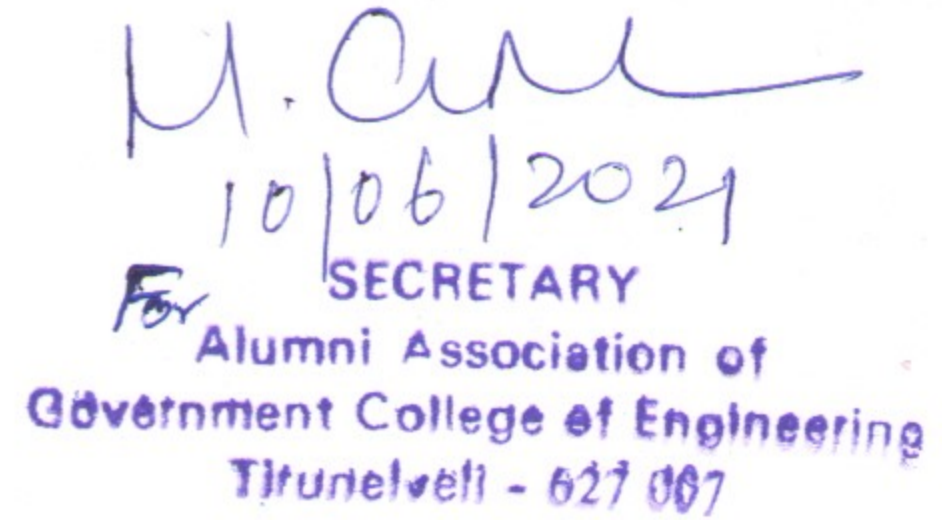 10/06/2021
For SECRETARY
Alumni Association of
Government College of Engineering
Tirunelveli - 627 007